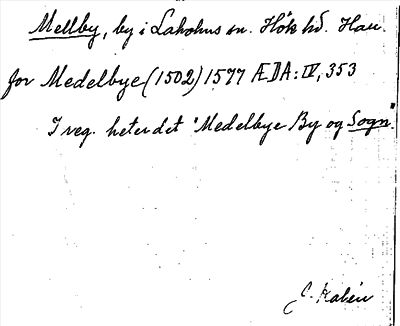 Mellby, by i Laholms sn. Hök hd. Hall.
for Medelbye (1502) 1577 ÆDA: IV, 353
I reg. heter det "Medelbye By og Sogn."
J. Kalén